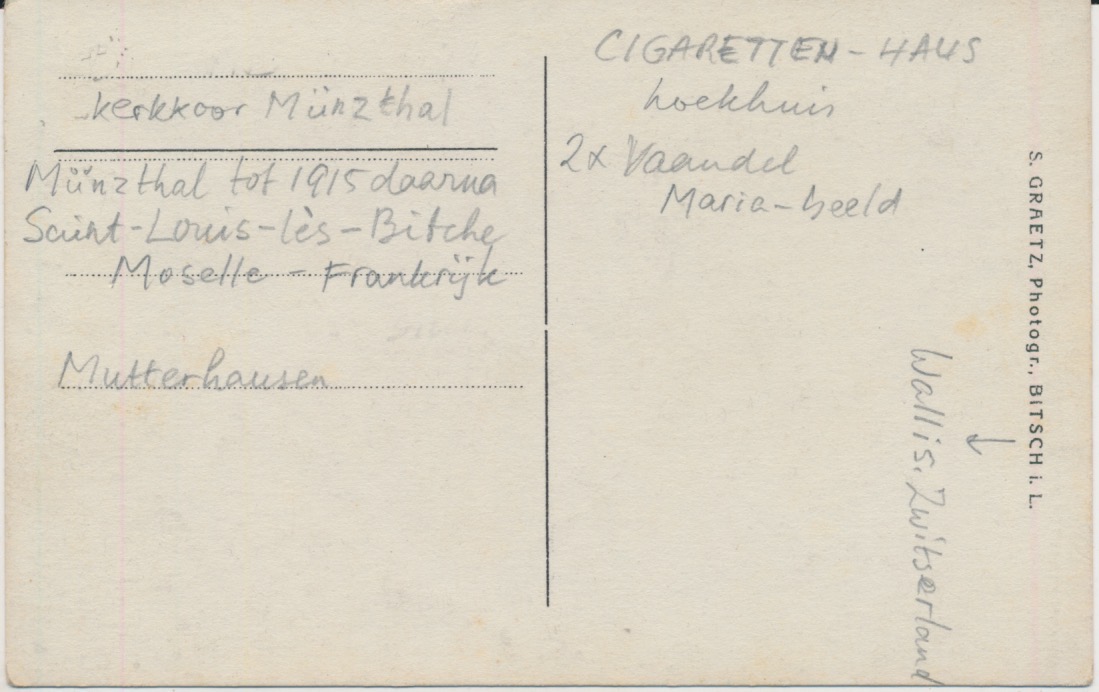 kerkkoor Münzthal
Münzthal tot 1915 daarna
Saint-Louis-lès-Bitche
Moselle - Frankrijk
Mutterhausen
CIGARETTEN - HAUS
hoekhuis
2x Vaandel
Maria-beeld
Wallis. Zwitserland
S. GRAETZ, Photogr., BITSCH i. L.